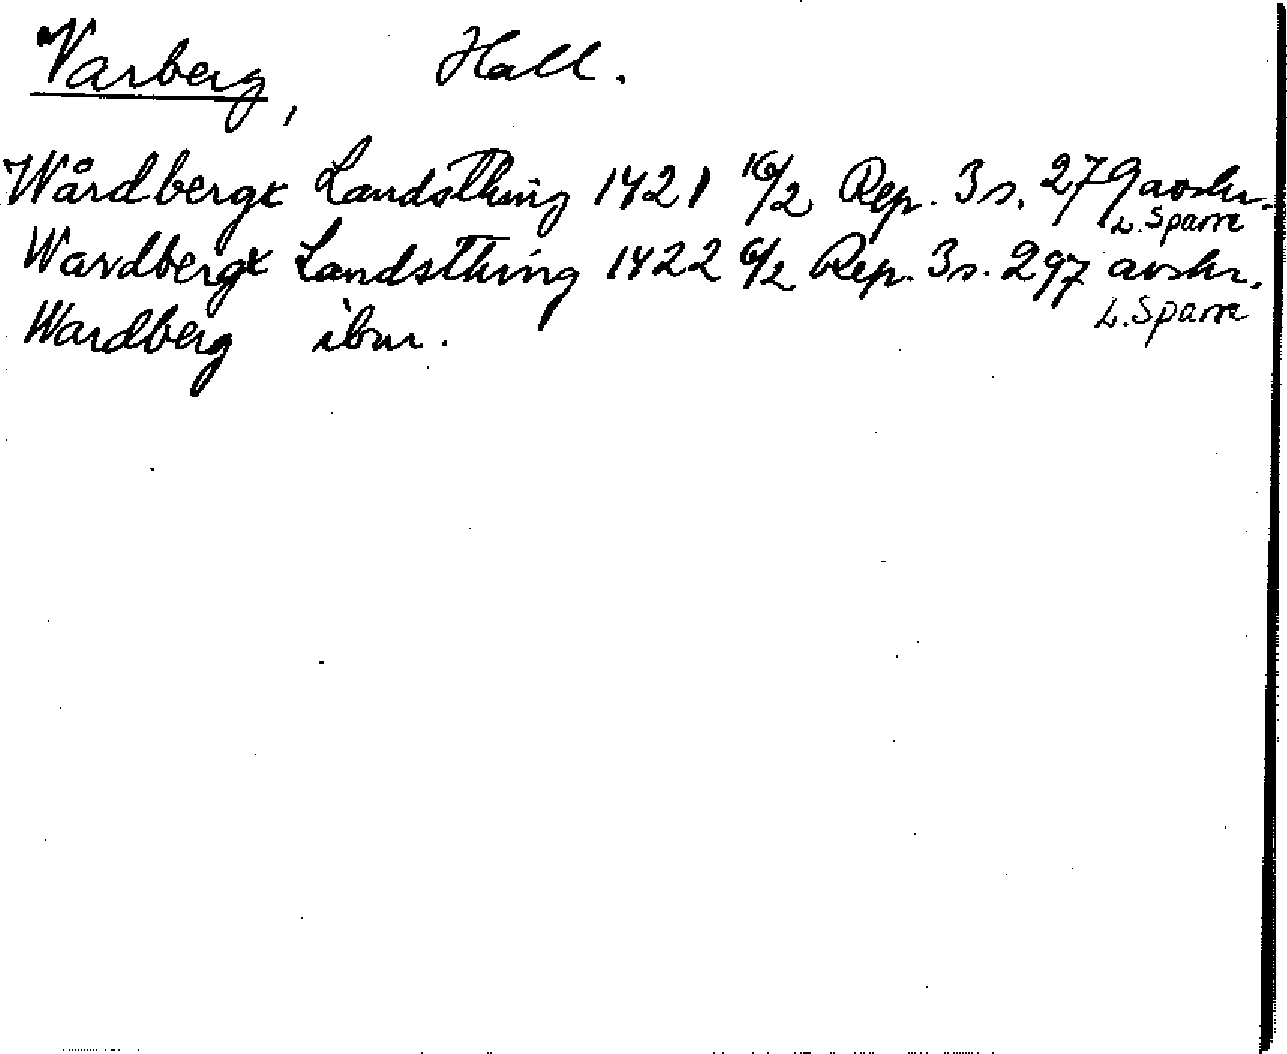 Varberg, Hall.
Wårdbergx Landsthing 1421 16/2 Rep. 3 s. 279 avskr.
L. Sparre
Wardbergx Landsthing 1422 6/2 Rep. 3 s. 297 avskr.
L. Sparre
Wardberg ibm.